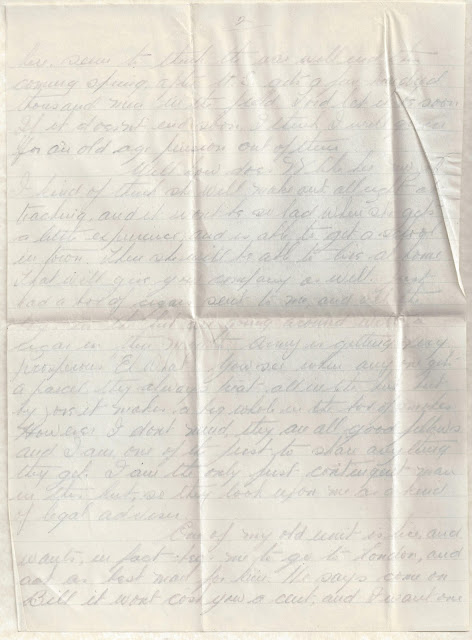 2
here seem to think the war will end this
coming spring, after it gets a few hundred
thousand men in the field. I do hope it is soon
If it doesn't end soon, I think I will
for an old age pension out of them.
Well how does like her
I kind of think she will make out allright at
teaching, and it wont be so bad when she gets
a little experience, and is able to get a school
in town. Then she will be able to live at home
That will give you company as well. I just
had a box of cigars sent to me, and all the
boys in the hut are going around with a
cigar in their mouth. Army is getting very
prosperous Eh what. You see when any one gets
a parcel, they always treat all in the hut, but
by jove it makes a big whole in the box of
However I dont mind, they are all good fellows
and I am one of the first to share anything
they get. I am the only first contingent man
in this hut, so they look upon me as a kind
of legal adviser.
One of my old unit is here, and
wants, in fact me to go to London, and
act as best man for him. He says come on
Bill it wont cost you a cent, and I want one